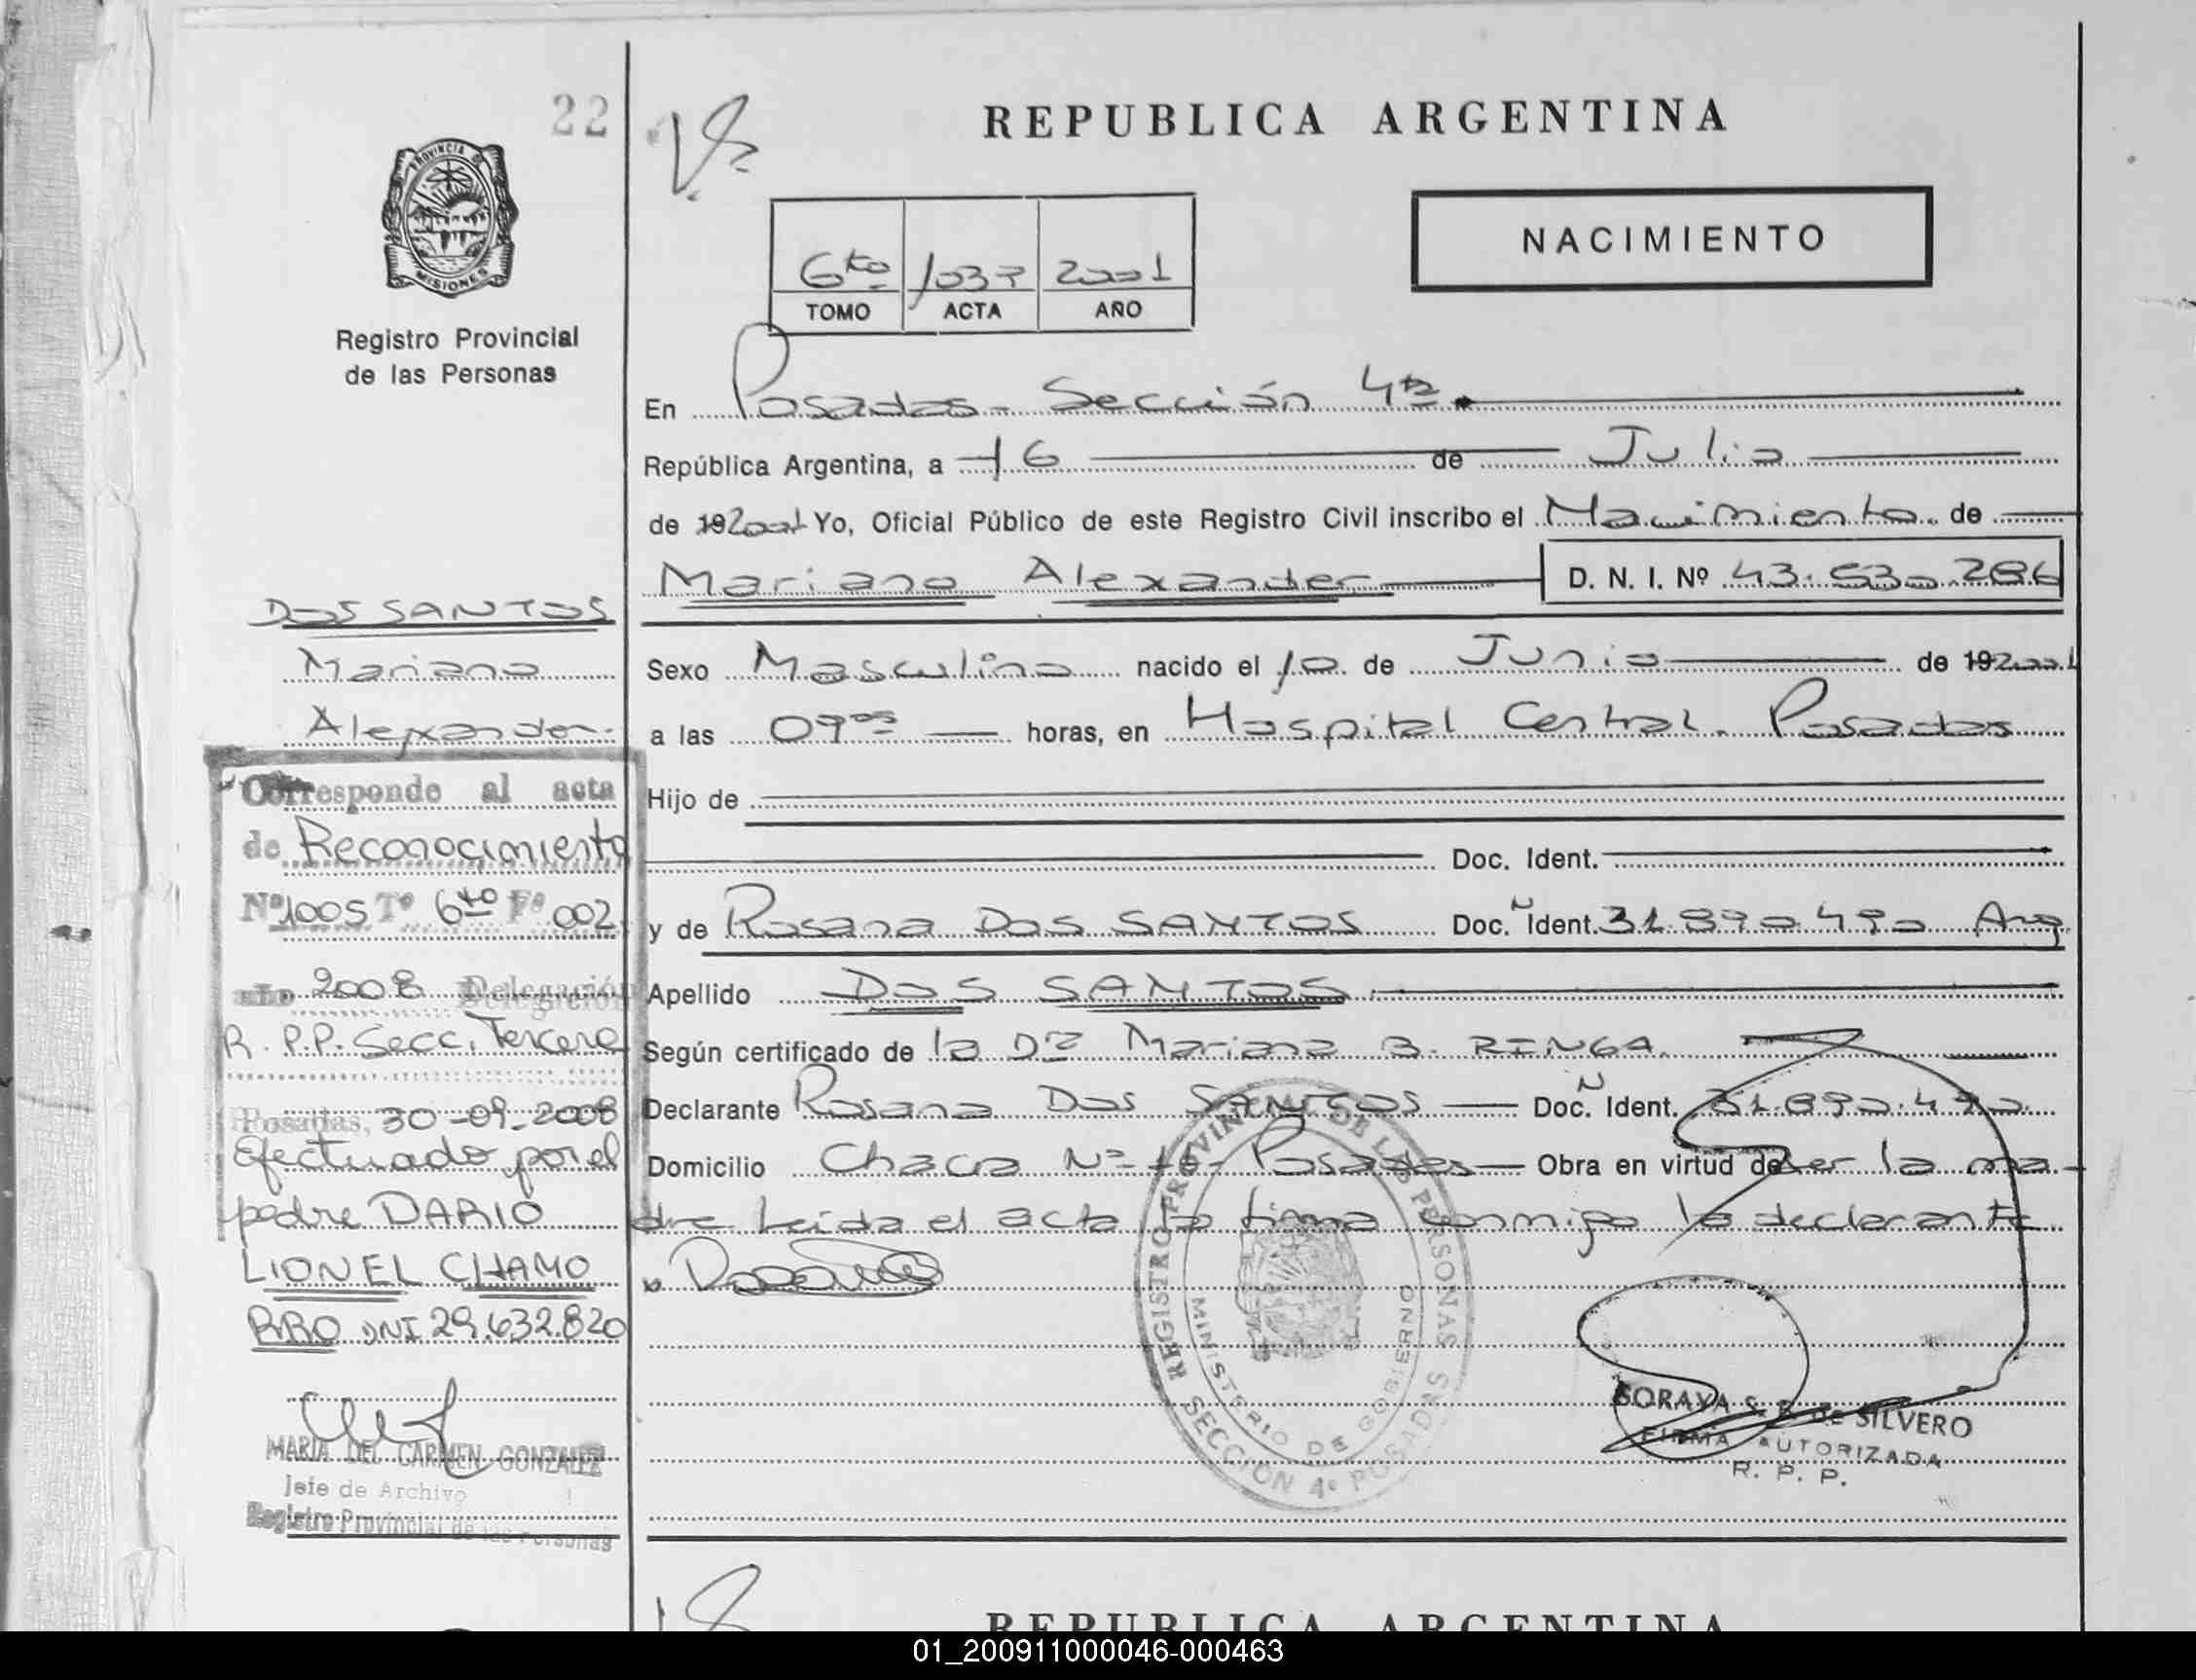 22
PROVINCIA DE
MISIONES
Registro Provincial
de las Personas
REPUBLICA ARGENTINA
NACIMIENTO
6to 1037 2001
TOMO ACTA AÑO
En Posadas - Sección 4ta
República Argentina, a 16 de Julio
de 192001 Yo, Oficial Público de este Registro Civil inscribo el Nacimiento de
Mariano Alexander D. N. I. Nº 43.530.286
Sexo Masculino nacido el 10 de Junio de 192001
a las 09 horas, en Hospital Central. Posadas
Hijo de
Doc. Ident.
y de Rosana Dos SANTOS Doc. N Ident. 31.890.490 Arg.
Apellido DOS SANTOS
Según certificado de la Dra Mariana B. RINGA.
Declarante Rosana Dos SANTOS Doc. N Ident. 31.890.490
Domicilio Chacra Nº 16 - Posadas Obra en virtud de ser la ma-
dre Leida el acta la firma conmigo la declarante
DOS SANTOS
Mariano
Alexander
Corresponde al acta
de Reconocimiento
Nº 1005 Tº 6to Fº 002
año 2008 Delegación
R. P.P. Secc. Tercera
Posadas, 30-09-2008
Efectuado por el
padre DARIO
LIONEL CHAMO
DNI 29.632.820
MARIA DEL CARMEN GONZALEZ
Jefe de Archivo
Registro Provincial de las Personas
REGISTRO PROVINCIAL DE LAS PERSONAS
MINISTERIO DE GOBIERNO
SECCION 4º POSADAS
SORAYA S. de SILVERO
FIRMA AUTORIZADA
R. P. P.
REPUBLICA ARGENTINA
01_200911000046-000463